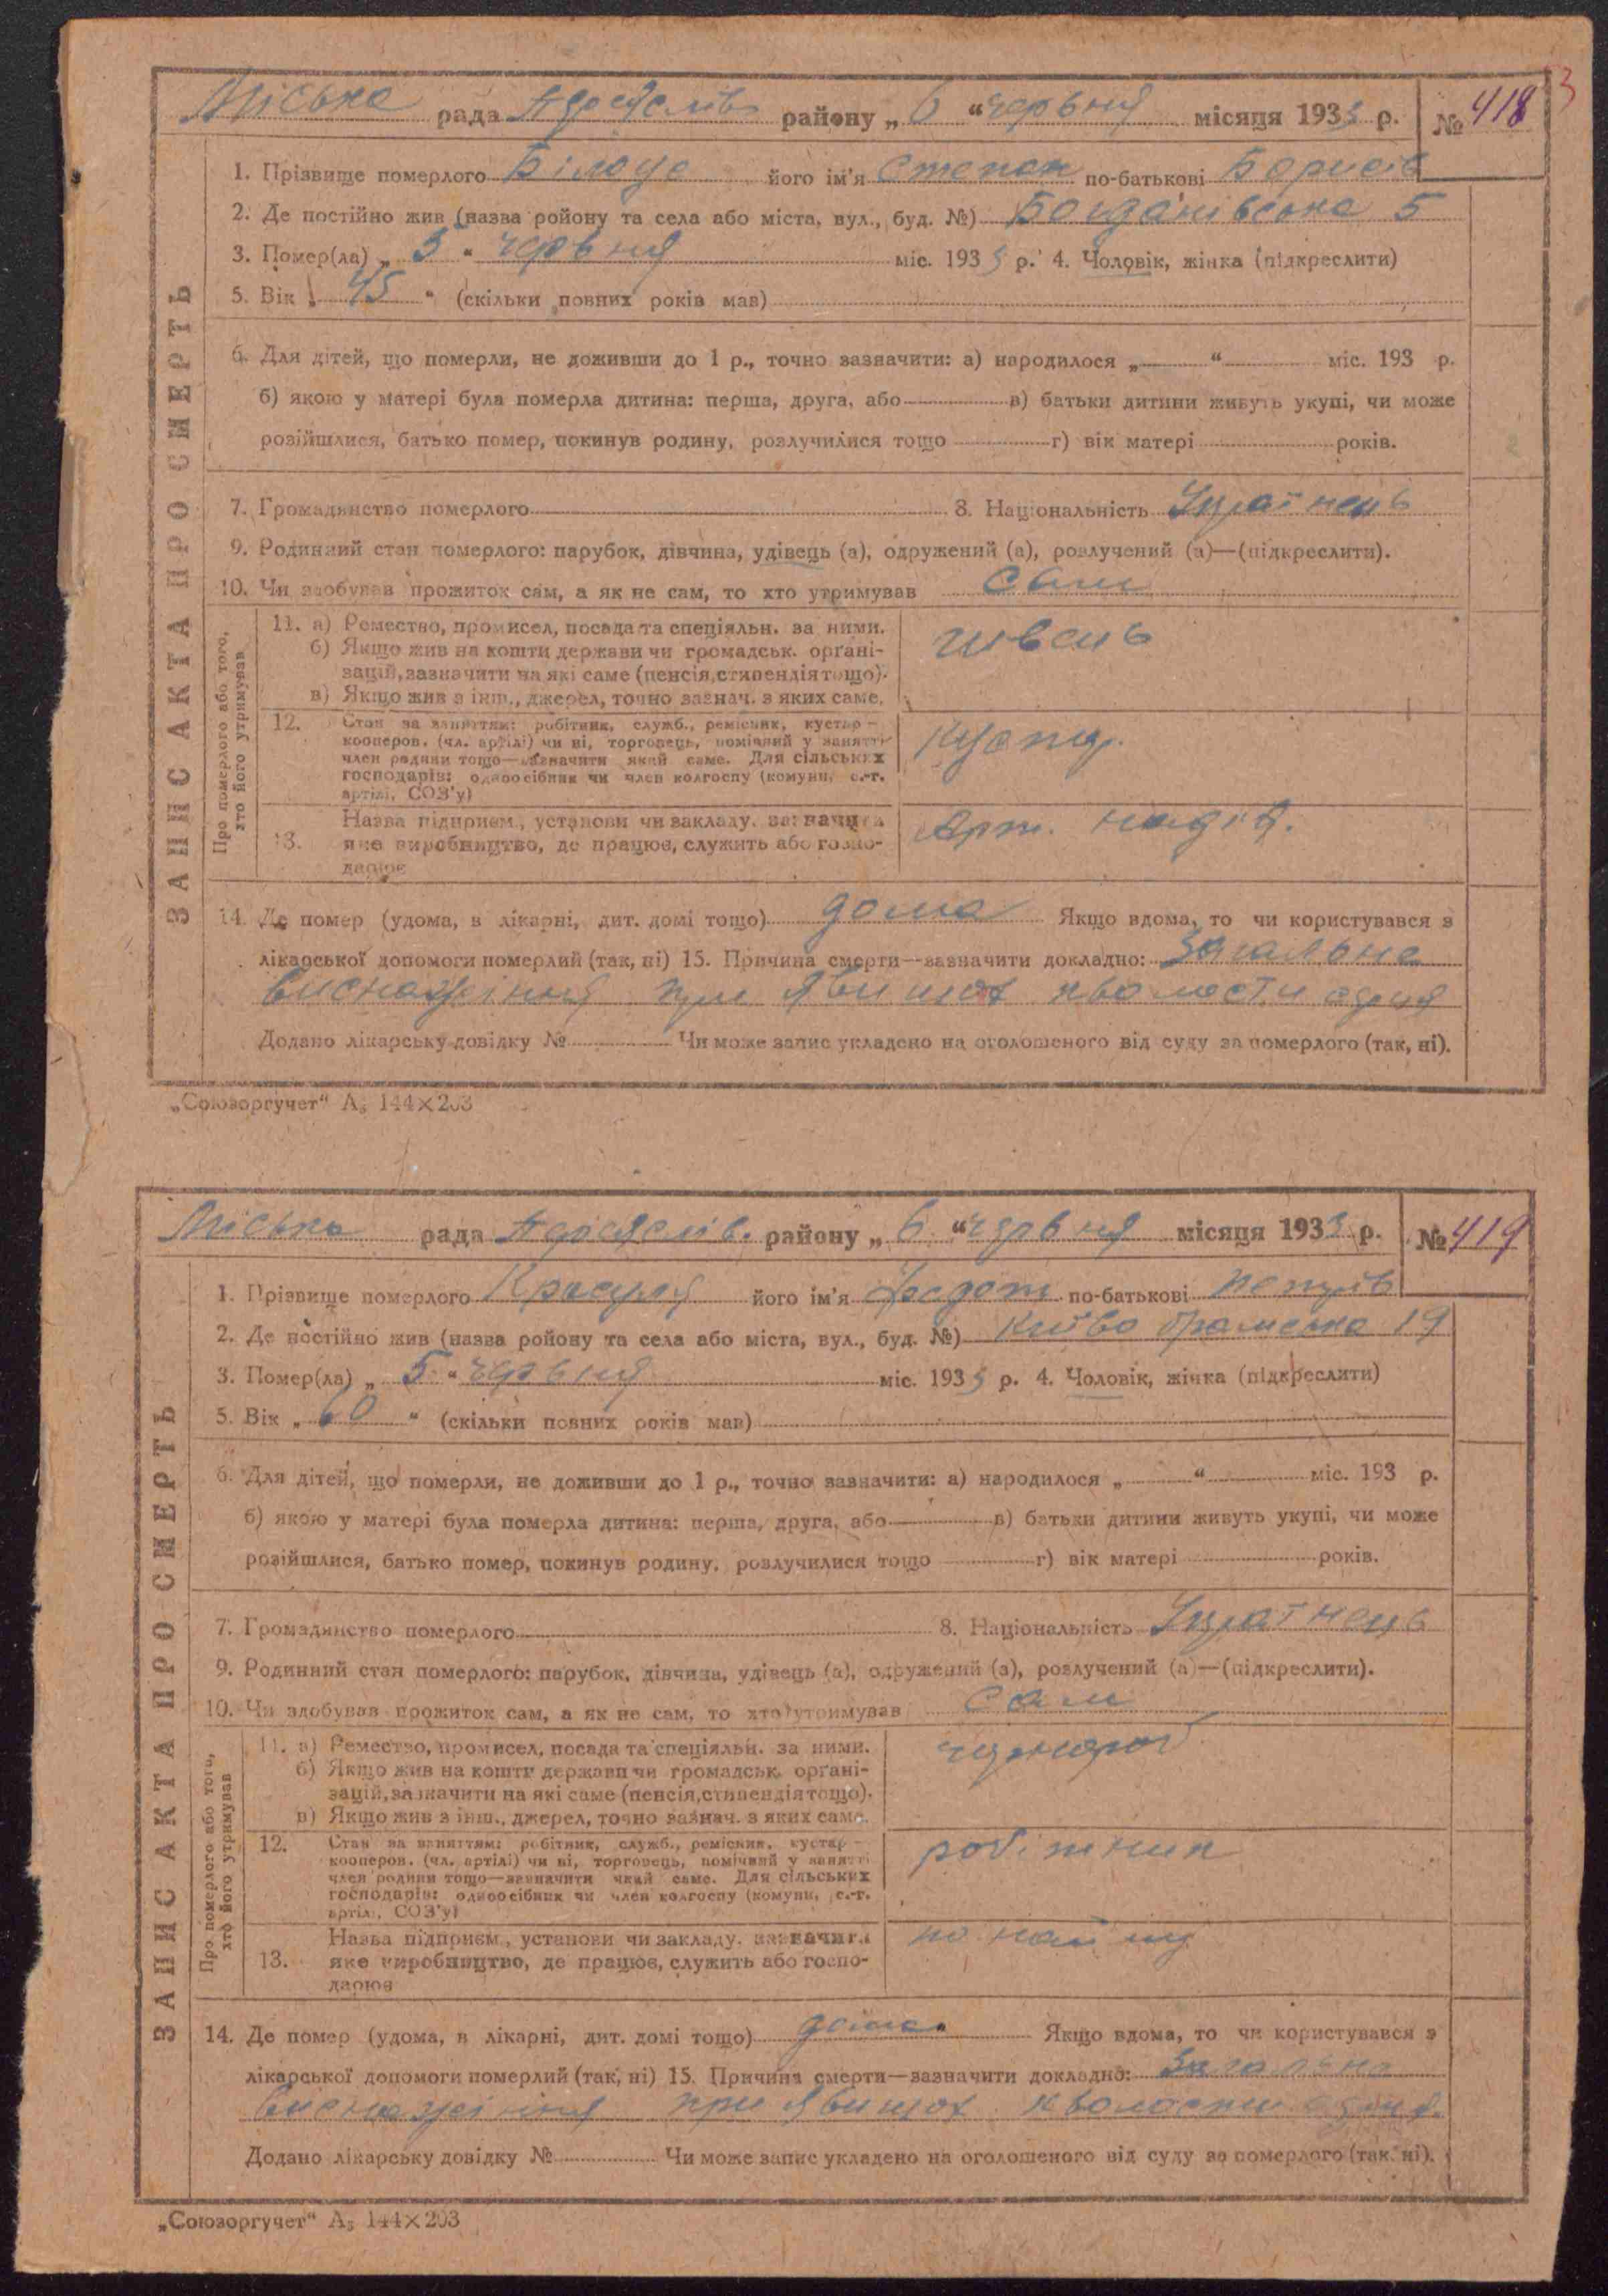 3
Міська рада Переяслів району „6“ червня місяця 1933 р. № 418
ЗАПИС АКТА ПРО СМЕРТЬ
1. Прізвище померлого Білоус його ім'я Степан по-батькові Борисів
2. Де постійно жив (назва ройону та села або міста, вул., буд. №) Богданівська 5
3. Помер(ла) „5“ червня міс. 1933 р. 4. Чоловік, жінка (підкреслити)
5. Вік „45“ (скільки повних років мав)
6. Для дітей, що померли, не доживши до 1 р., точно зазначити: а) народилося „ “ міс. 193 р.
б) якою у матері була померла дитина: перша, друга, або в) батьки дитини живуть укупі, чи може
розійшлися, батько помер, покинув родину, розлучилися тощо г) вік матері років.
7. Громадянство померлого 8. Національність Українець
9. Родинний стан померлого: парубок, дівчина, удівець (а), одружений (а), розлучений (а)—(підкреслити).
10. Чи здобував прожиток сам, а як не сам, то хто утримував сам
Про померлого або того, хто його утримував
11. а) Ремество, промисел, посада та спеціяльн. за ними. швець
б) Якщо жив на кошти держави чи громадськ. органі-
зацій, зазначити на які саме (пенсія, стипендія тощо).
в) Якщо жив з інш., джерел, точно зазнач. з яких саме.
12. Стан за заняттям: робітник, служб., ремісник, кустар – кустар.
кооперов. (чл. артілі) чи ні, торговець, помічний у занятті
член родини тощо—зазначити який саме. Для сільських
господарів: одноосібник чи член колгоспу (комуни, с.-г.
артілі, СОЗ'у)
13. Назва підприєм., установи чи закладу, зазначити Арт.
яке виробництво, де працює, служить або госпо-
дарює
14. Де помер (удома, в лікарні, дит. домі тощо) дома Якщо вдома, то чи користувався з
лікарської допомоги померлий (так, ні) 15. Причина смерти—зазначити докладно: Загальне
виснаження при явищах кволости серця
Додано лікарську довідку № Чи може запис укладено на оголошеного від суду за померлого (так, ні).
„Союзоргучет“ А5 144×203
Міська рада Переяслів. району „6“ червня місяця 1933 р. № 419
ЗАПИС АКТА ПРО СМЕРТЬ
1. Прізвище померлого Красуля його ім'я Федот по-батькові
2. Де постійно жив (назва ройону та села або міста, вул., буд. №) Київо Брамська 19
3. Помер(ла) „5“ червня міс. 1933 р. 4. Чоловік, жінка (підкреслити)
5. Вік „60“ (скільки повних років мав)
6. Для дітей, що померли, не доживши до 1 р., точно зазначити: а) народилося „ “ міс. 193 р.
б) якою у матері була померла дитина: перша, друга, або в) батьки дитини живуть укупі, чи може
розійшлися, батько помер, покинув родину, розлучилися тощо г) вік матері років.
7. Громадянство померлого 8. Національність Українець
9. Родинний стан померлого: парубок, дівчина, удівець (а), одружений (а), розлучений (а)—(підкреслити).
10. Чи здобував прожиток сам, а як не сам, то хто утримував сам
Про померлого або того, хто його утримував
11. а) Ремество, промисел, посада та спеціяльн. за ними. чорнороб
б) Якщо жив на кошти держави чи громадськ. органі-
зацій, зазначити на які саме (пенсія, стипендія тощо).
в) Якщо жив з інш., джерел, точно зазнач. з яких саме.
12. Стан за заняттям: робітник, служб., ремісник, кустар – робітник
кооперов. (чл. артілі) чи ні, торговець, помічний у занятті
член родини тощо—зазначити який саме. Для сільських
господарів: одноосібник чи член колгоспу (комуни, с.-г.
артілі, СОЗ'у)
13. Назва підприєм., установи чи закладу, зазначити по найму
яке виробництво, де працює, служить або госпо-
дарює
14. Де помер (удома, в лікарні, дит. домі тощо) дома Якщо вдома, то чи користувався з
лікарської допомоги померлий (так, ні) 15. Причина смерти—зазначити докладно: Загальне
виснаження при явищах кволости серця.
Додано лікарську довідку № Чи може запис укладено на оголошеного від суду за померлого (так, ні).
„Союзоргучет“ А5 144×203